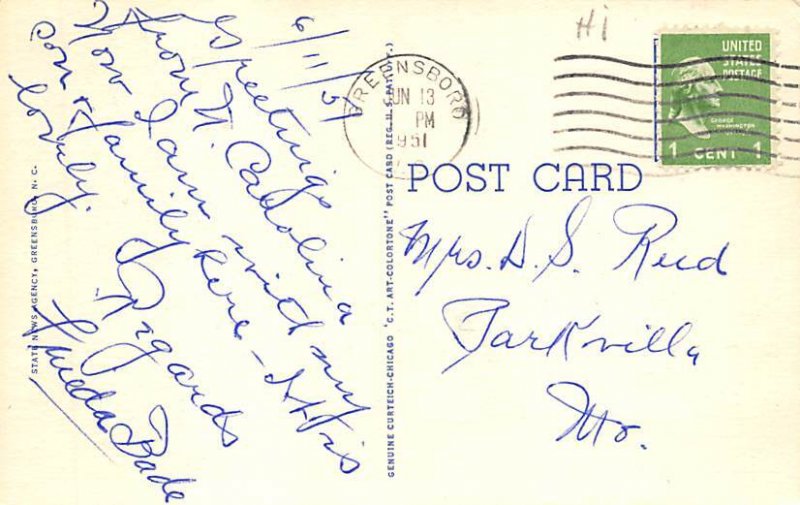 6/11/51
Greetings
from N. Carolina
Now I am with my
son & family here - It is
lovely.
Regards
Bade
STATE NEWS AGENCY, GREENSBORO, N. C.
GENUINE CURTEICH-CHICAGO "C.T. ART-COLORTONE" POST CARD (REG. U. S. PAT. OFF.)
Hi
GREENSBORO
JUN 13
PM
1951
UNITED
STATES
POSTAGE
GEORGE
WASHINGTON
1 CENT 1
POST CARD
Mrs. D. S. Reid
Parkville
Mo.